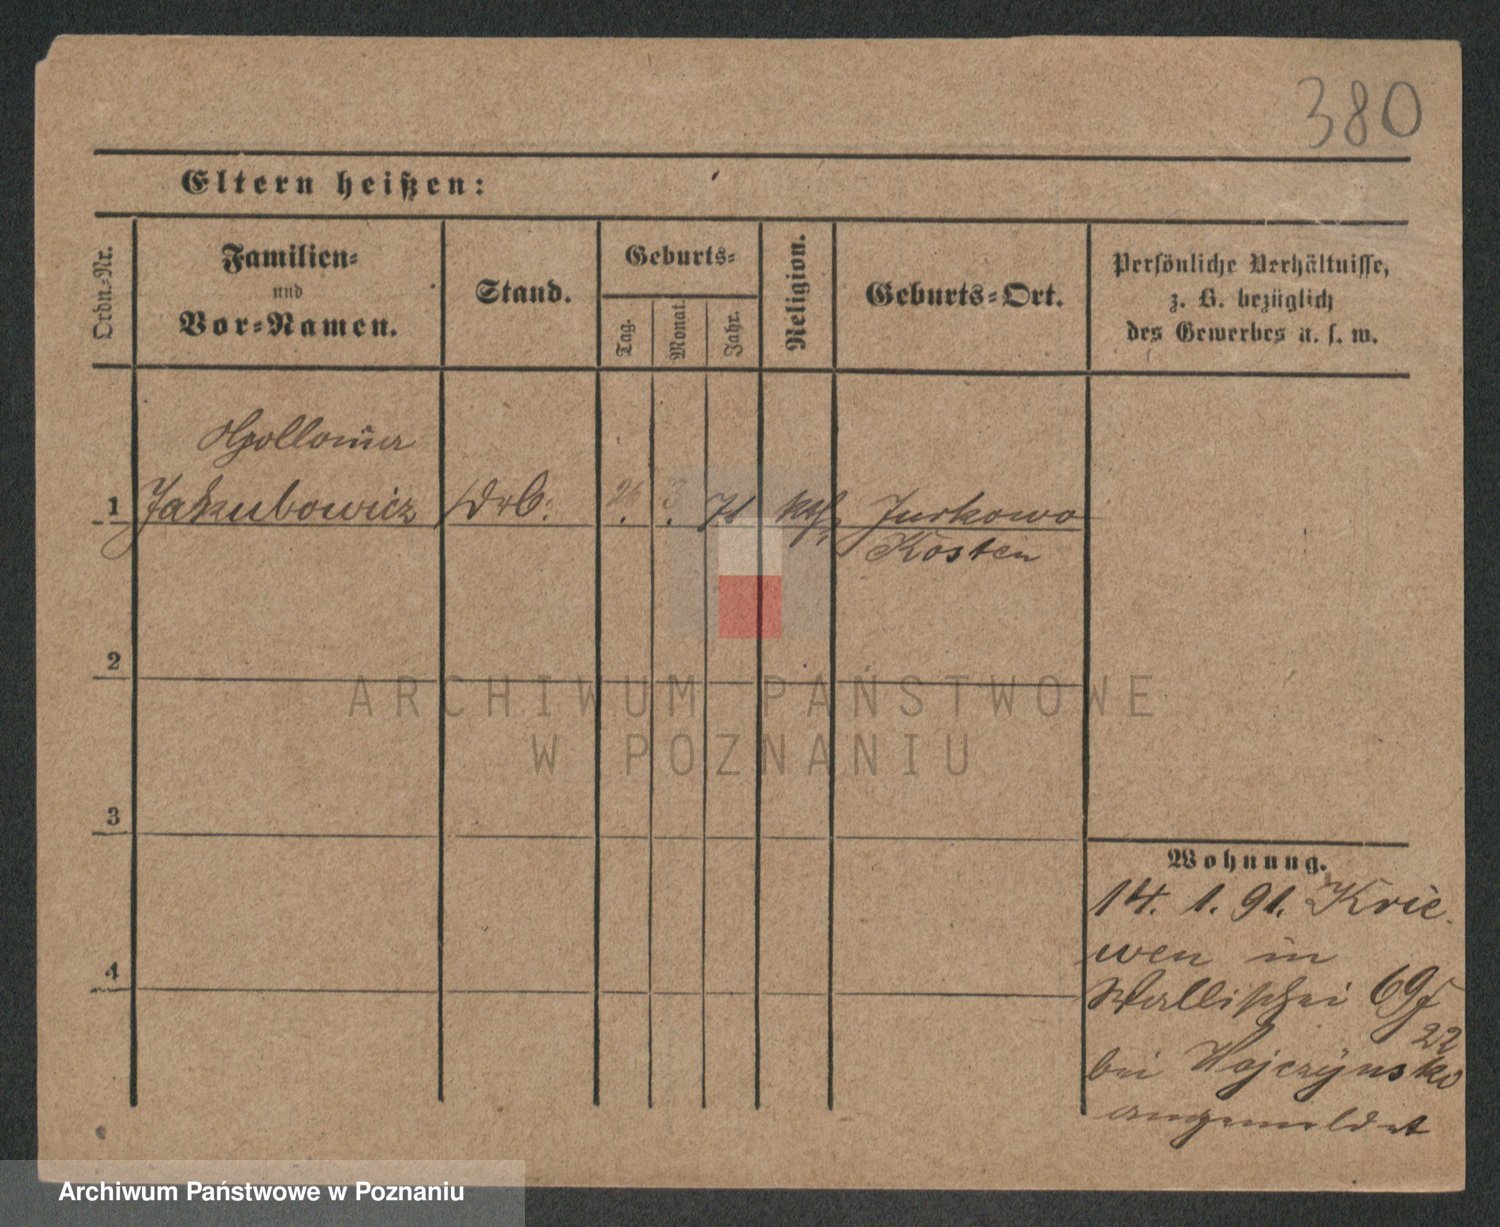 380
Eltern heißen:
Ordn.-Nr.
Familien-
und
Vor-Namen.
Stand.
Geburts-
Tag.
Monat.
Jahr.
Religion.
Geburts-Ort.
Persönliche Verhältnisse,
z. B. bezüglich
des Gewerbes u. s. w.
1
Jakubowicz
26. 3. 71
kth.
Jurkowo
Kosten
2
3
4
ARCHIWUM PAŃSTWOWE
W POZNANIU
Wohnung.
14. 1. 91. Krie-
wen in
Wallischei 69
22
bei
angemeldet
Archiwum Państwowe w Poznaniu